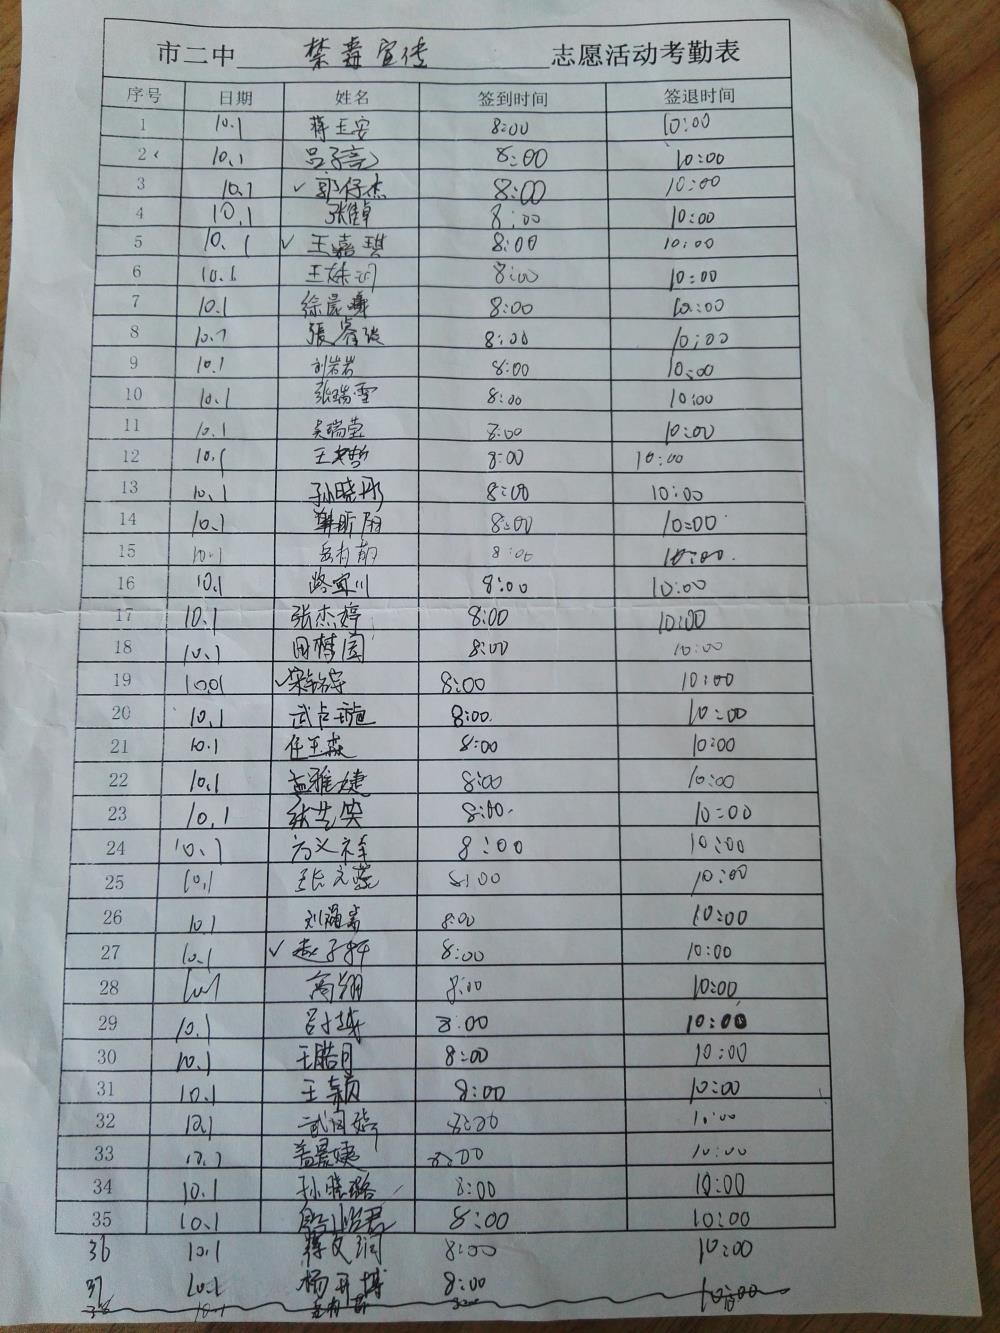 市二中 禁毒宣传 志愿活动考勤表
序号 日期 姓名 签到时间 签退时间
1 10.1 蒋玉安 8:00 10:00
2 10.1 吕子亮 8:00 10:00
3 10.1 ✓郭仔杰 8:00 10:00
4 10.1 8:00 10:00
5 10.1 ✓王嘉琪 8:00 10:00
6 10.1 8:00 10:00
7 10.1 徐晨曦 8:00 10:00
8 10.1 張睿 8:00 10:00
9 10.1 刘岩岩 8:00 10:00
10 10.1 张瑞雪 8:00 10:00
11 10.1 吴瑞莹 8:00 10:00
12 10.1 8:00 10:00
13 10.1 孙晓彤 8:00 10:00
14 10.1 8:00 10:00
15 10.1 8:00 10:00
16 10.1 路寅川 8:00 10:00
17 10.1 张杰婷 8:00 10:00
18 10.1 周梦圆 8:00 10:00
19 10.1 ✓ 8:00 10:00
20 10.1 武占璇 8:00 10:00
21 10.1 任玉森 8:00 10:00
22 10.1 孟雅婕 8:00 10:00
23 10.1 张艺笑 8:00 10:00
24 10.1 8:00 10:00
25 10.1 8:00 10:00
26 10.1 8:00 10:00
27 10.1 ✓赵子轩 8:00 10:00
28 10.1 高翔 8:00 10:00
29 10.1 吕小越 8:00 10:00
30 10.1 王皓月 8:00 10:00
31 10.1 王颖 8:00 10:00
32 10.1 8:00 10:00
33 10.1 孟晨婕 8:00 10:00
34 10.1 孙晓璐 8:00 10:00
35 10.1 8:00 10:00
36 10.1 蒋文润 8:00 10:00
37 10.1 杨开博 8:00 10:00